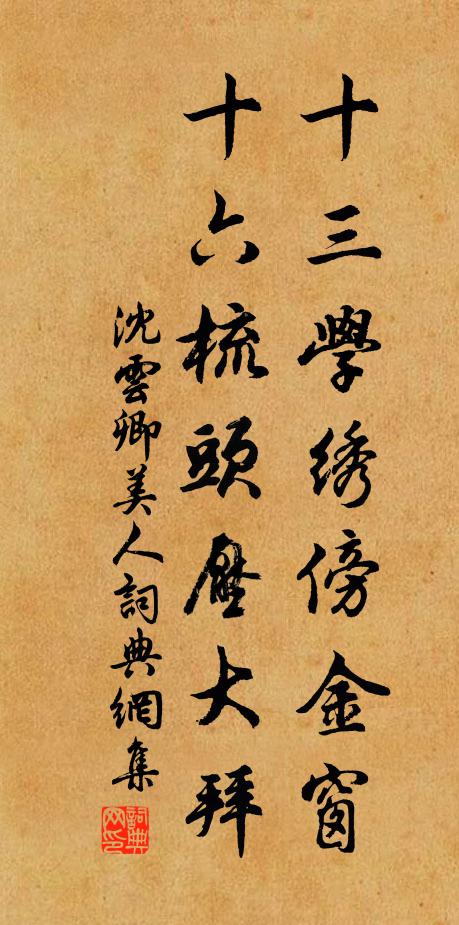 十三學綉傍金窗
十六梳頭壓大拜
沈雲卿美人詞典網集
詞典網印